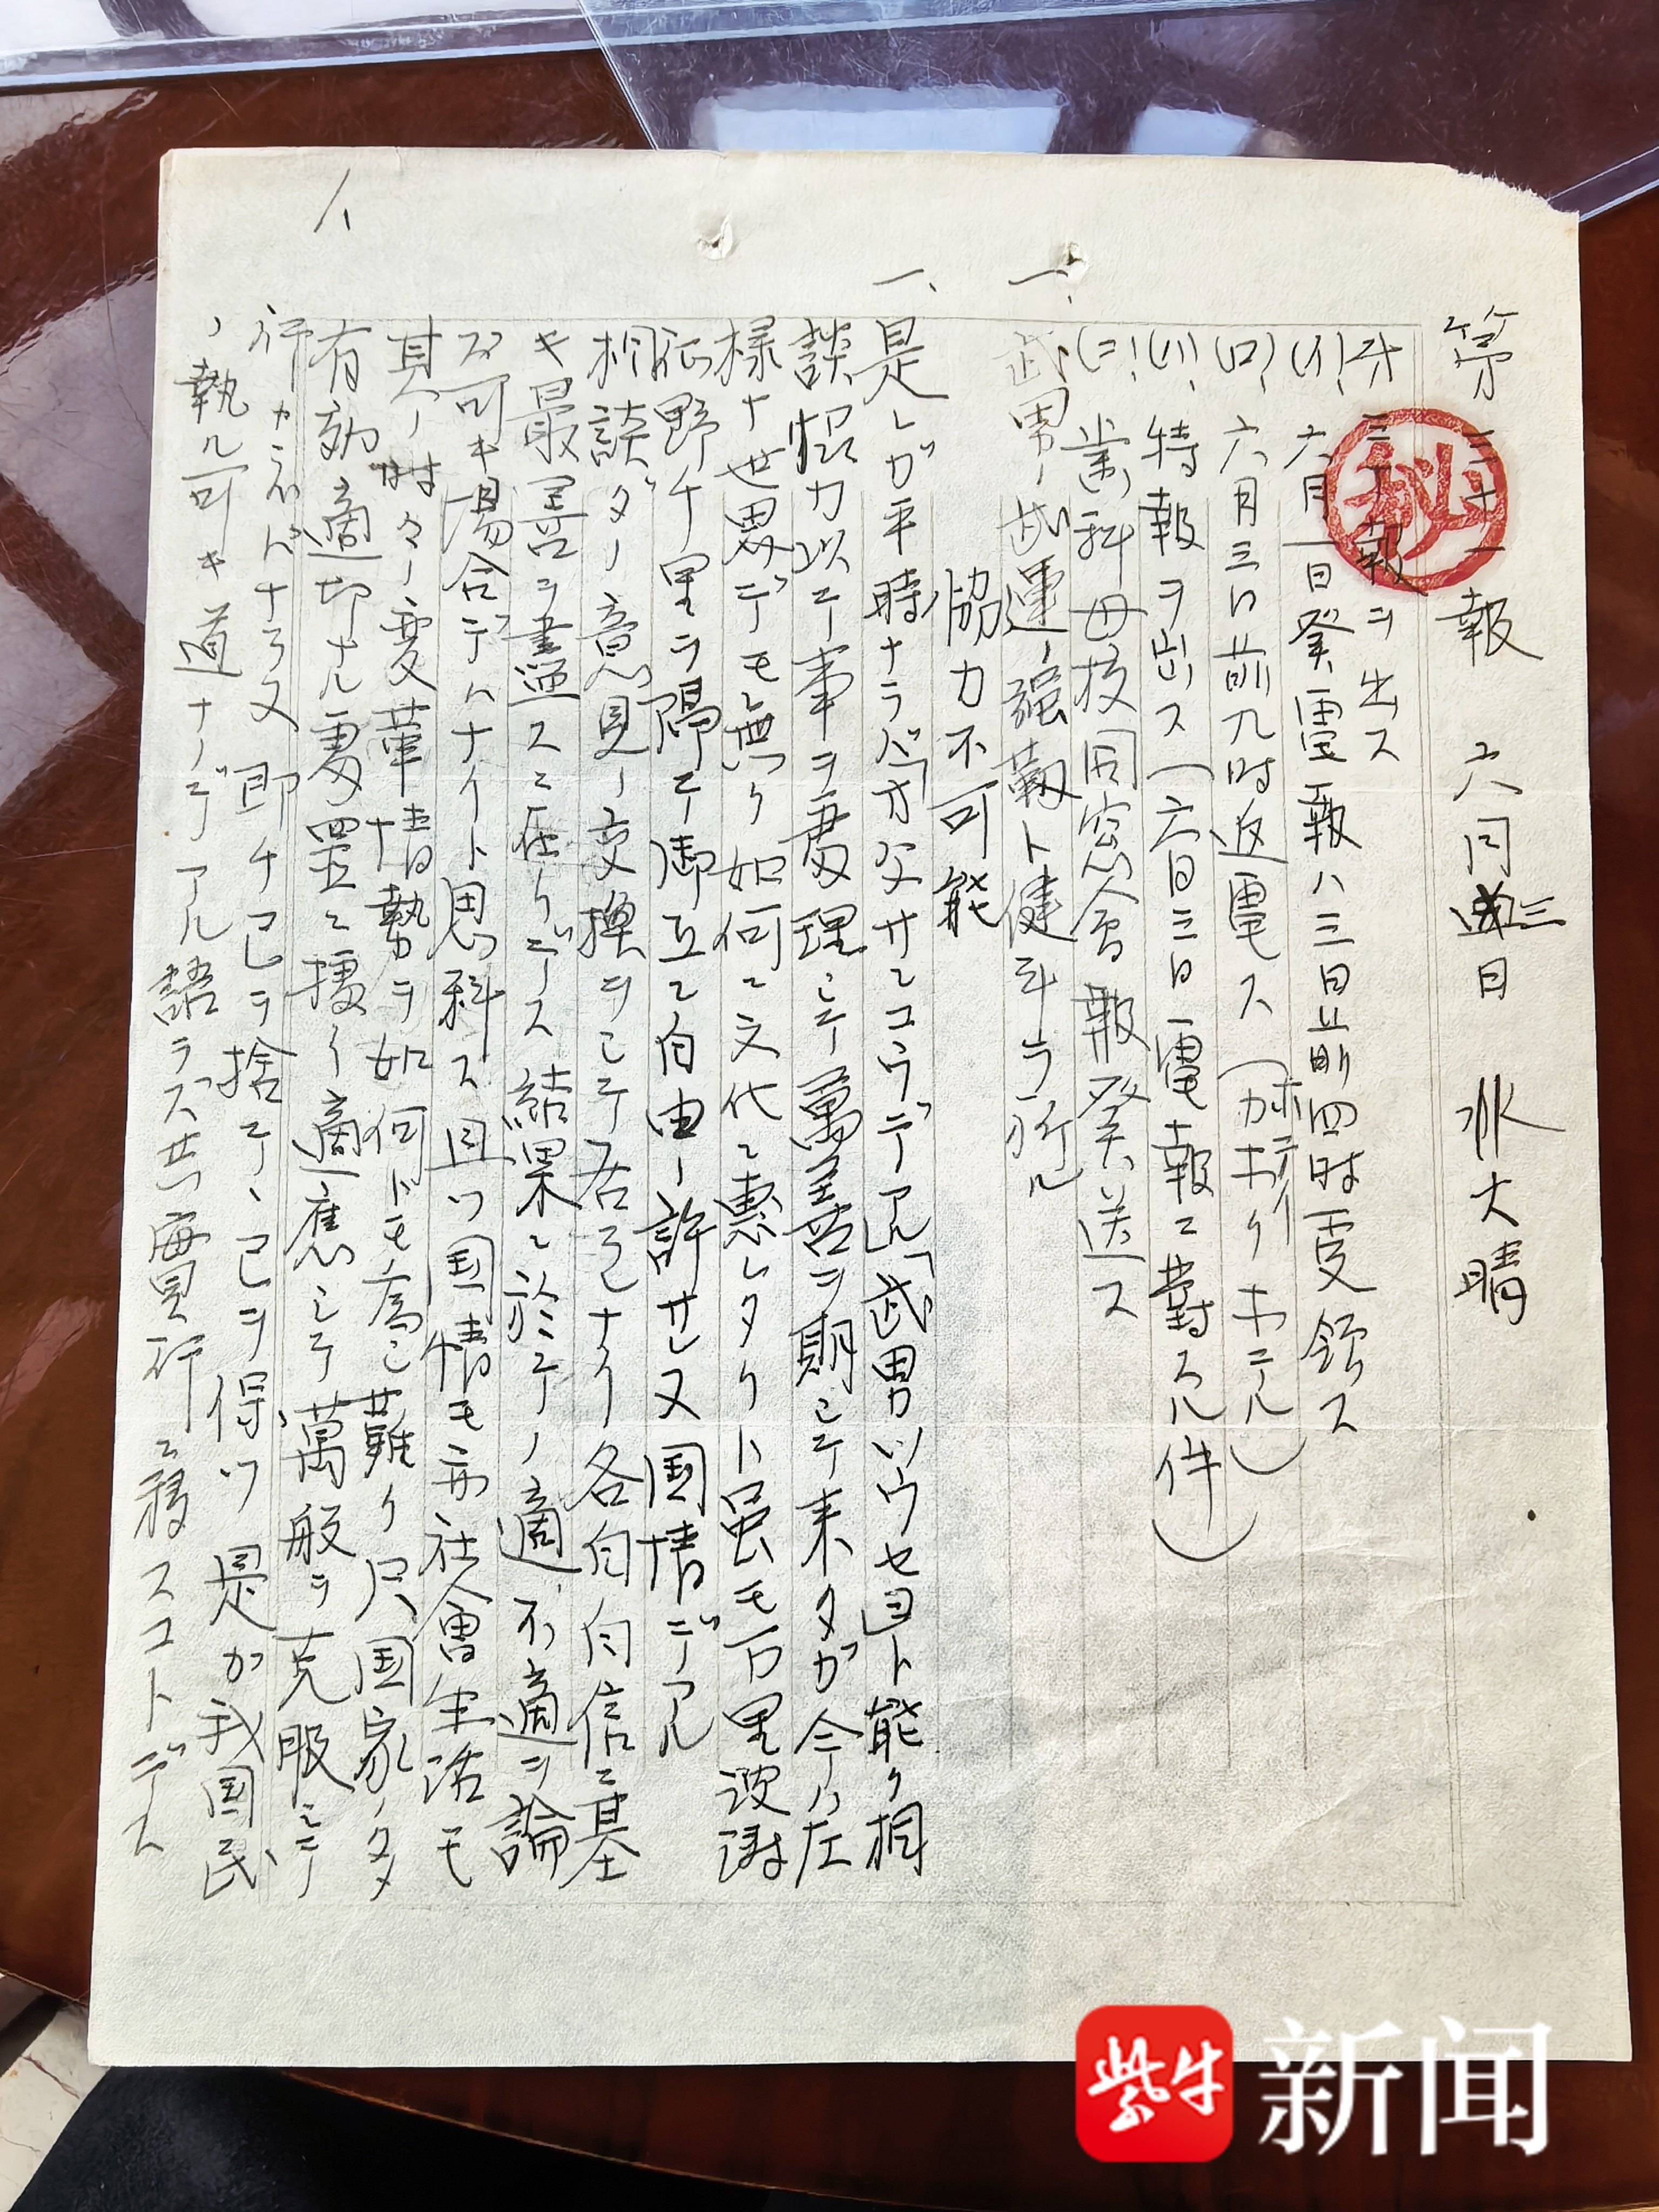 第三十一報 六月三日 水 大晴
秘
三十報ヲ出ス
(イ)、六月一日発電報ハ三日午前四時受領ス
(ロ)、六月三日前九時返電ス
(ハ)、特報ヲ出ス(六日三日電報ニ対スル件)
(ニ)、業科母校同窓会報発送ス
一、
武男ノ武運ノ強靱ト健斗ヲ祈ル
協力不可能
一、
是レガ平時ナラバ「オ父サンコウデアル」「武男ソウセヨ」ト能ク相
談協力以テ事ヲ處理シテ萬善ヲ期シテ来タガ今ハ左
様ナ世界デモ無ク如何ニ文代ニ恵レタリト虽モ万里波濤
征野千里ヲ隔テ御互ニ自由ノ許サレ又国情デアル
相談ダノ意見ノ交換ヲシテ居ラレナイ各自自信ニ基
キ最善ヲ盡スニ在リデース 結果ニ於テノ適、不適ヲ論
ズ可キ場合デハナイト思料ス且ツ国情モ亦社會生活モ
其ノ時々ノ変革情勢ヲ如何トモ為シ難ク只国家ノタメ
有効適切ナル處置ニ擾リ適應シテ萬般ヲ克服シテ
行カネバナラヌ即チ己ヲ捨テ、己ヲ得ツ是カ我国民
ノ執ル可キ道ナノデアル語ラズ共實行ニ移スコトデス
紫牛新闻